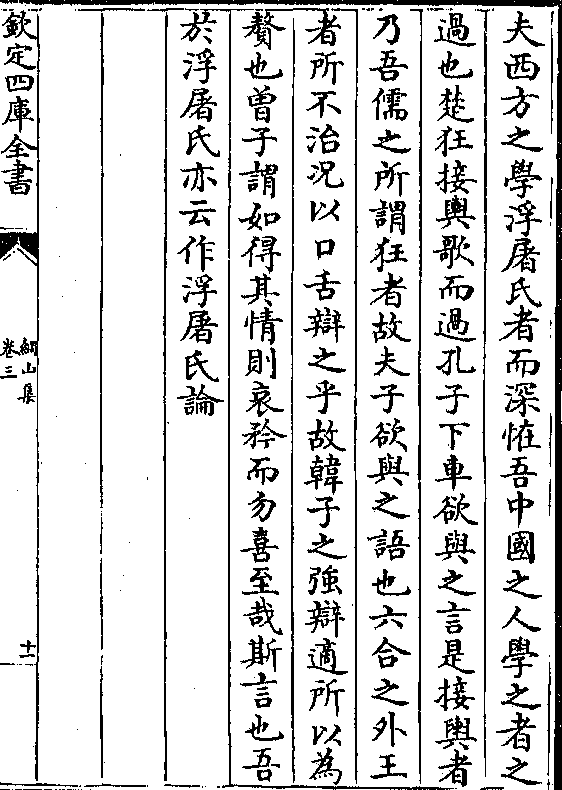 夫西方之學浮屠氏者而深恠吾中國之人學之者之
過也楚狂接輿歌而過孔子下車欲與之言是接輿者
乃吾儒之所謂狂者故夫子欲與之語也六合之外王
者所不治况以口舌辯之乎故韓子之強辯適所以為
贅也曽子謂如得其情則哀矜而勿喜至哉斯言也吾
於浮屠氏亦云作浮屠氏論
欽定四庫全書
網山集
卷三
十一